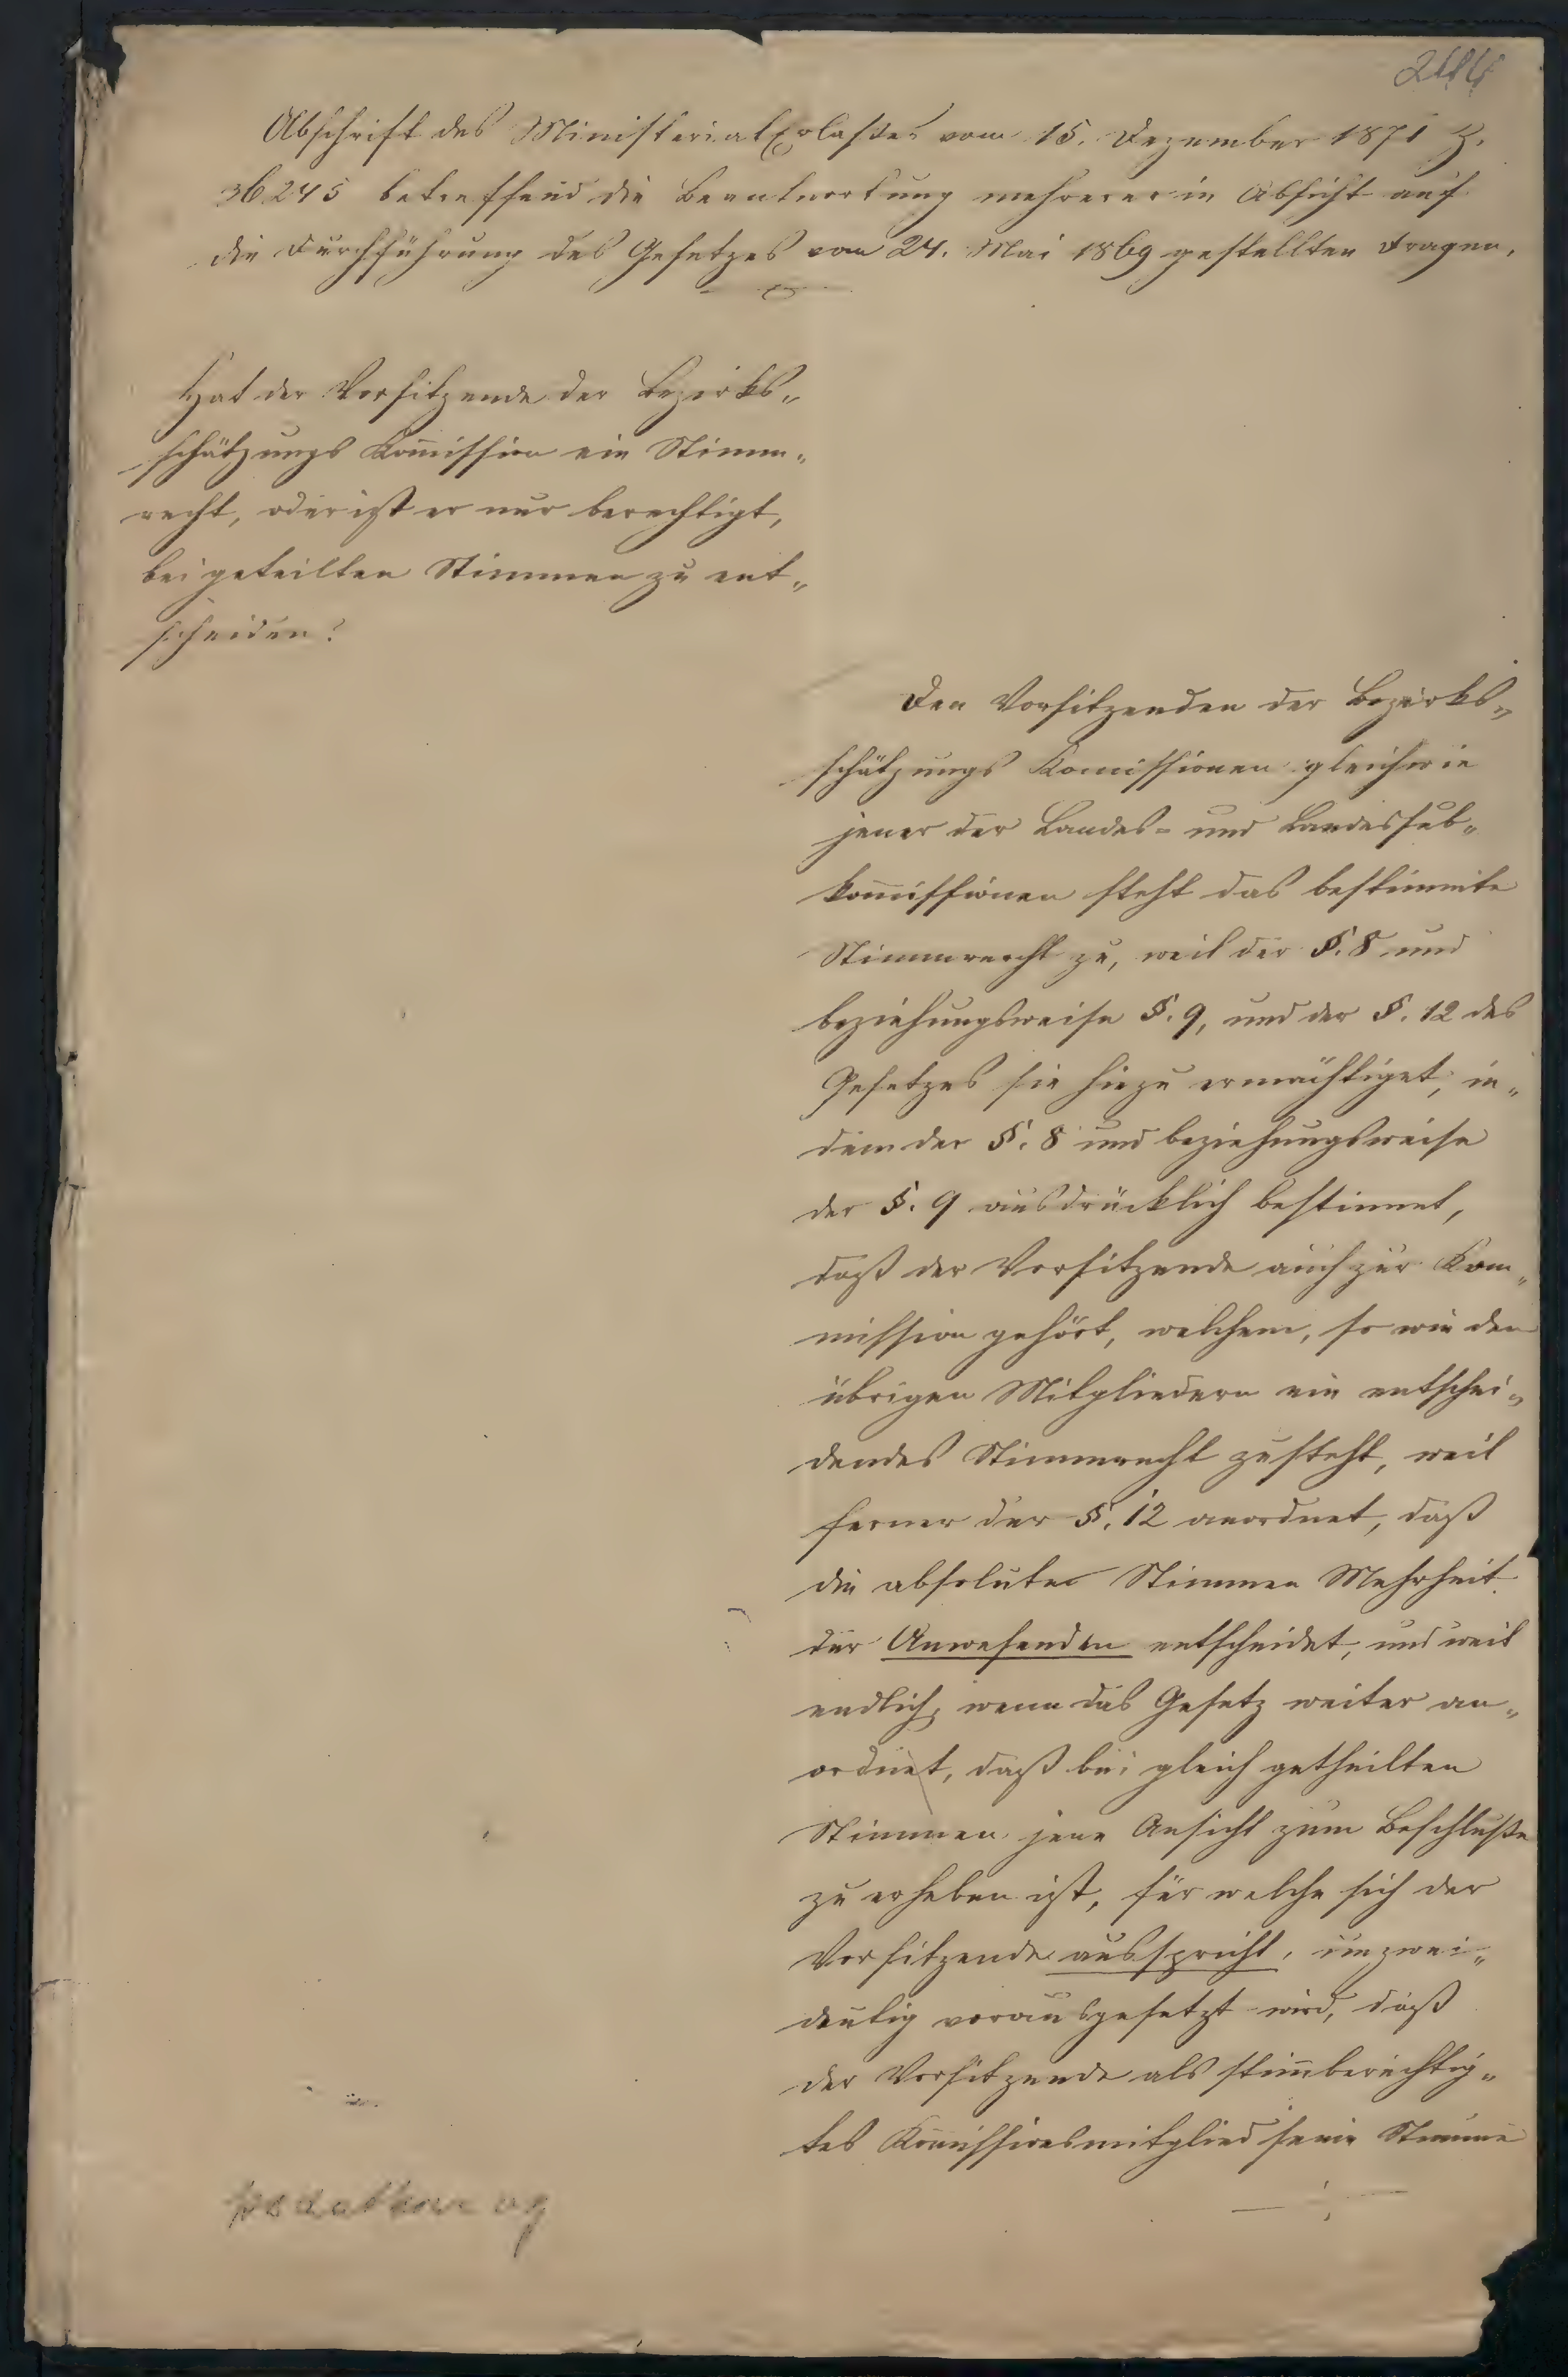 Abschrift des Ministerial Erlaßes vom 15. Dezember 1871 Z.
36245 betreffend die Beantwortung mehrerer in Absicht auf
die Durchführung des Gesetzes vom 24. Mai 1869 gestellten Fragen.
Hat der Vorsitzende der Bezirks„
schätzungs Kom̄ission ein Stimm„
recht, oder ist er nur berechtigt,
bei geteilten Stimmen zu ent„
scheiden?
Den Vorsitzenden der Bezirks„
schätzungs Komissionen gleichwie
jener der Landes- und Landessub„
kom̄issionen steht das bestimmte
Stimmrecht zu, weil der §. 8 und
beziehungsweise §. 9, und der §. 12 des
Gesetzes sie hiezu ermächtiget, in„
dem der §. 8 und beziehungsweise
der §. 9 ausdrücklich bestimmt,
daß der Vorsitzende auch zur Kom„
mission gehört, welchem, so wie den
übrigen Mitgliedern ein entschei„
dendes Stimmrecht zusteht, weil
ferner der §. 12 anordnet, daß
die absolute Stimmen Mehrheit
der Anwesenden entscheidet, und weil
endlich, wenn das Gesetz weiter an„
ordnet, daß bei gleich getheilten
Stimmen jene Ansicht zum Beschluße
zu erheben ist, für welche sich der
Vorsitzende ausspricht, unzwei„
deutig vorausgesetzt wird, daß
der Vorsitzende als stim̄berechtig„
tes Kom̄issionsmitglied seine Stimme